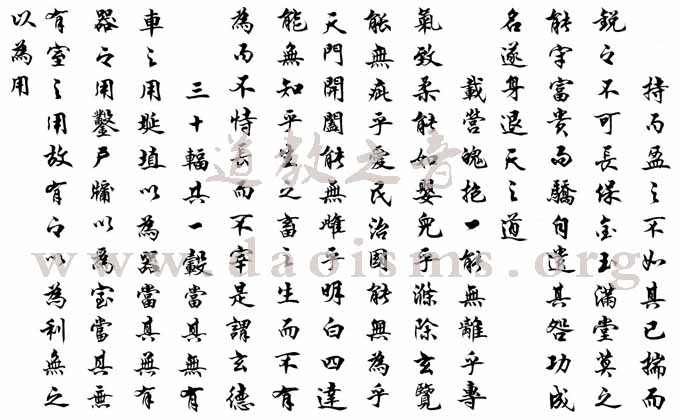 持而盈之不如其已揣而
銳之不可長保金玉滿堂莫之
能守富貴而驕自遺其咎功成
名遂身退天之道
載營魄抱一能無離乎專
氣致柔能如嬰兒乎滌除玄覽
能無疵乎愛民治國能無為乎
天門開闔能無雌乎明白四達
能無知乎生之畜之生而不有
為而不恃長而不宰是謂玄德
三十輻其一轂當其無有
車之用埏埴以為器當其無有
器之用鑿戶牖以為室當其無
有室之用故有之以為利無之
以為用
道教之音
www.daoisms.org